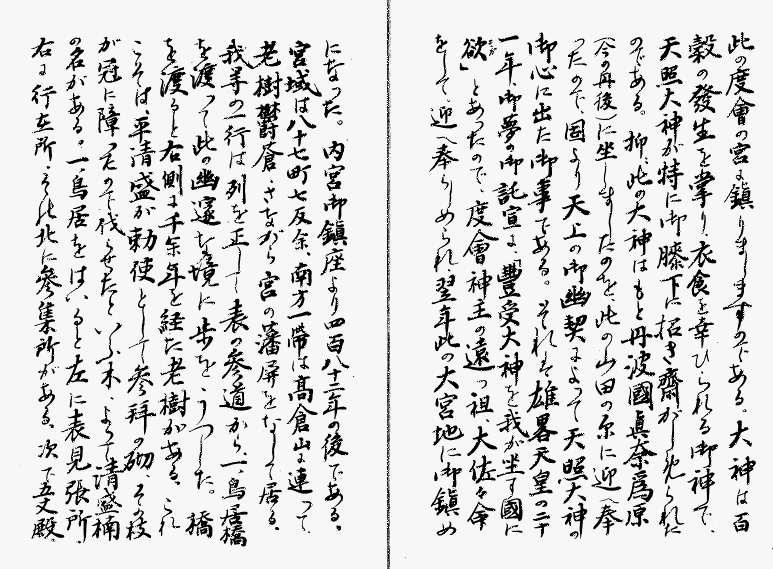 此の度會の宮に鎭りましますのである。大神は百
穀の發生を掌り、衣食を幸ひられる御神で、
天照大神が特に御膝下に招き齋がしめられた
のである。抑、此の大神はもと丹波國眞奈爲原
(今の丹後)に坐しましたのを、此の山田の原に迎へ奉
つたので、固より天上の御幽契によつて天照大神の
御心に出た御事である。それは雄畧天皇の二十
一年、御夢の御託宣に、「豐受大神を我が坐す國に
欲」とあつたので、度會神主の遠つ祖大佐々命
をして、迎へ奉らしめられ、翌年此の大宮地に御鎭め
になつた。内宮御鎭座より四百八十二年の後である。
宮域は八十七町七反余、南方一帶は高倉山に連つて、
老樹鬱蒼、さながら宮の藩屏をなして居る。
我等の一行は列を正して表の參道から、一ノ鳥居橋
を渡つて此の幽邃な境に歩をうつした。橋
を渡ると右側に千余年を経た老樹がある。これ
こそは平清盛が勅使として參拜の砌、その枝
が冠に障つたので伐らせたといふ木、よつて清盛楠
の名がある。一ノ鳥居をはいると左に表見張所、
右に行在所、その北に參集所がある。次で五丈殿、